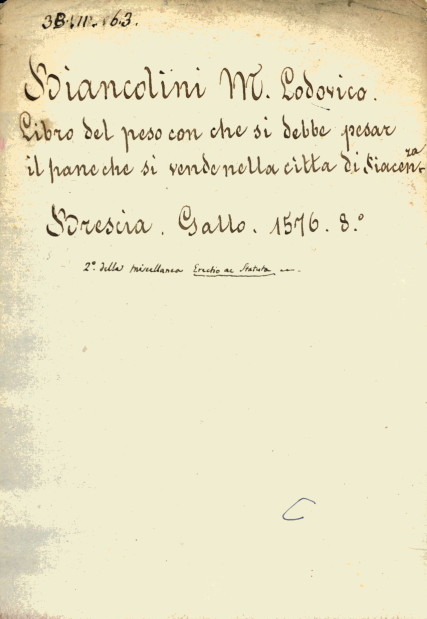 3B.III.63.
Biancolini M. Lodovico.
Libro del peso con che si debbe pesar
il pane che si vende nella citta di Piacenza
Brescia. Gallo. 1576. 8.º
2º. della miscellanea Erectio ac Statuta
C